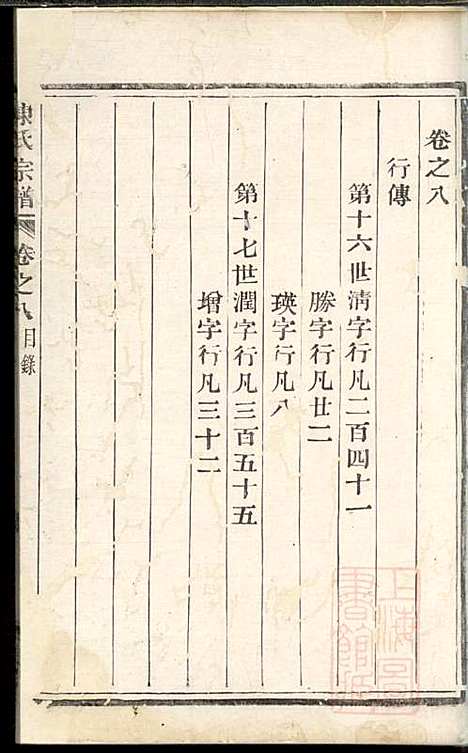 卷之八
行傳
第十六世淸字行凡二百四十一
勝字行凡廿二
瑛字行凡八
第十七世潤字行凡三百五十五
增字行凡三十二
陳氏宗譜 卷之八 目錄
上海圖書館藏